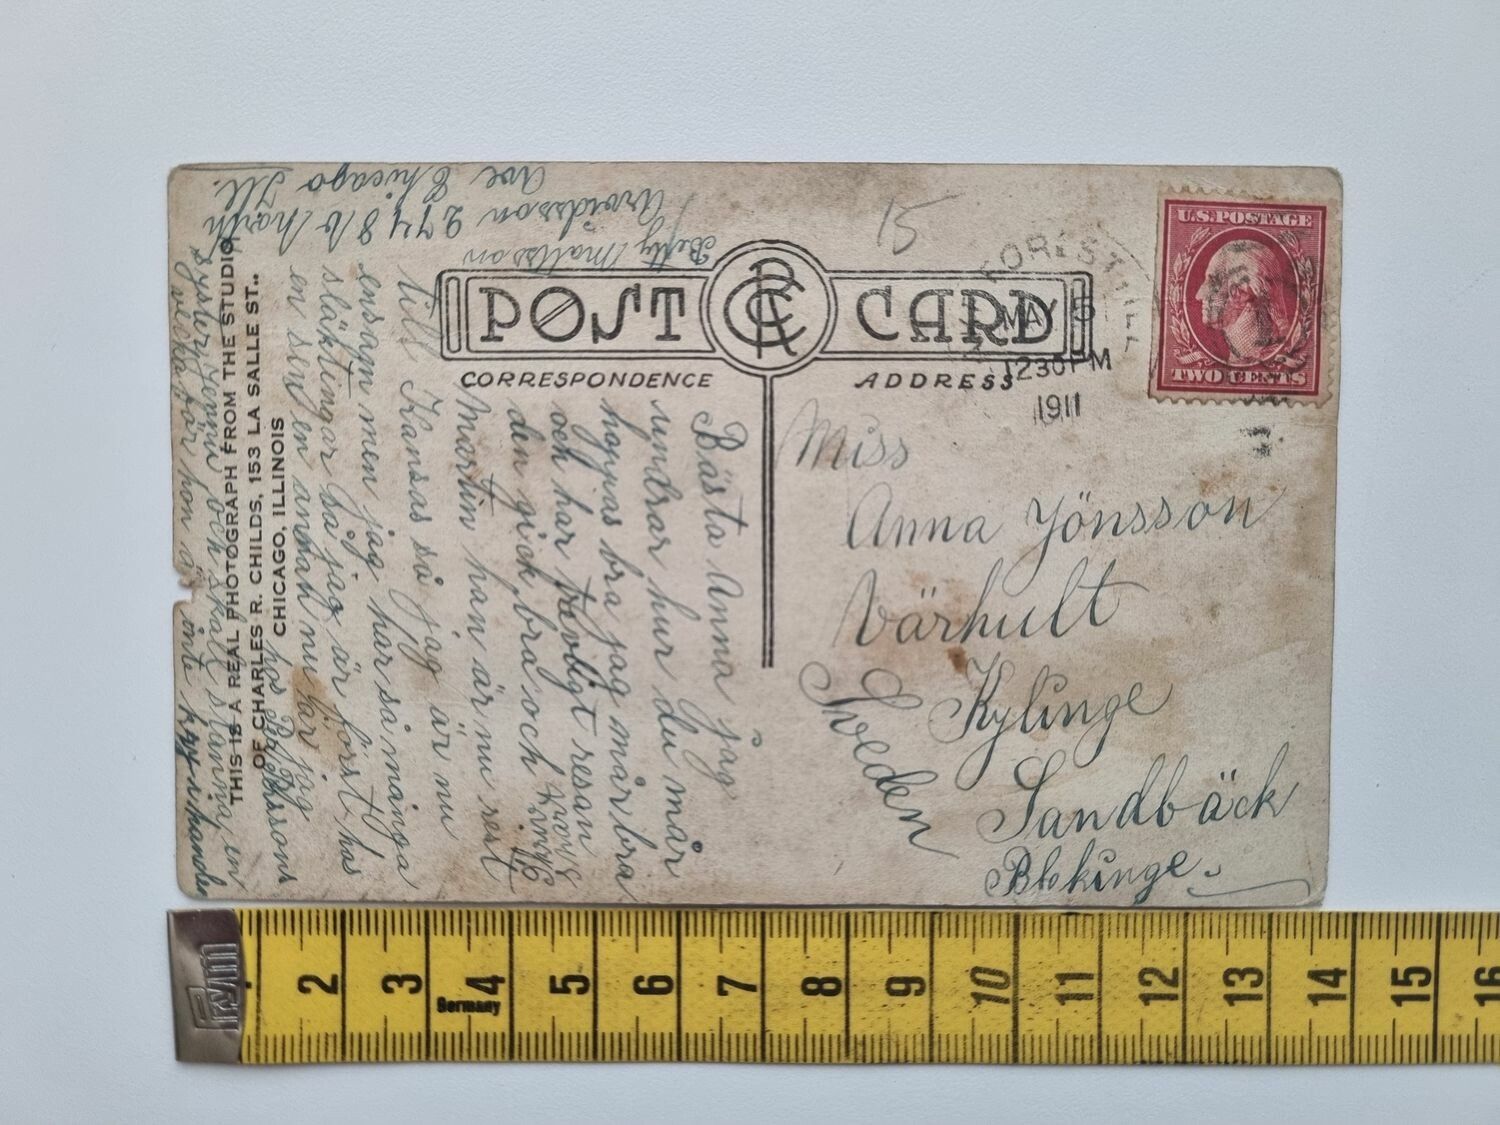 POST CARD
CORRESPONDENCE
ADDRESS
THIS IS A REAL PHOTOGRAPH FROM THE STUDIO
OF CHARLES R. CHILDS, 153 LA SALLE ST.,
CHICAGO, ILLINOIS
15
MAY 5
1230PM
1911
U.S.POSTAGE
TWO CENTS
Bästa Anna jag
undrar hur du mår
hoppas bra jag mår bra
och har trevligt resan
den gick bra och
Martin han är nu rest
till Kansas så jag är nu
ensam men jag har så många
släktingar så jag är först hos
en sen en annan nu är jag
hos
syster Jenni och skall stanna en
vecka för hon är inte
Betty Mattsson
Arvidsson 2748 North
Ave Chicago Ill.
Miss
Anna Yönsson
Värhult
Kylinge
Sandbäck
Blekinge
Sweden
PRYM
2 3 4 5 6 7 8 9 10 11 12 13 14 15 16
Germany